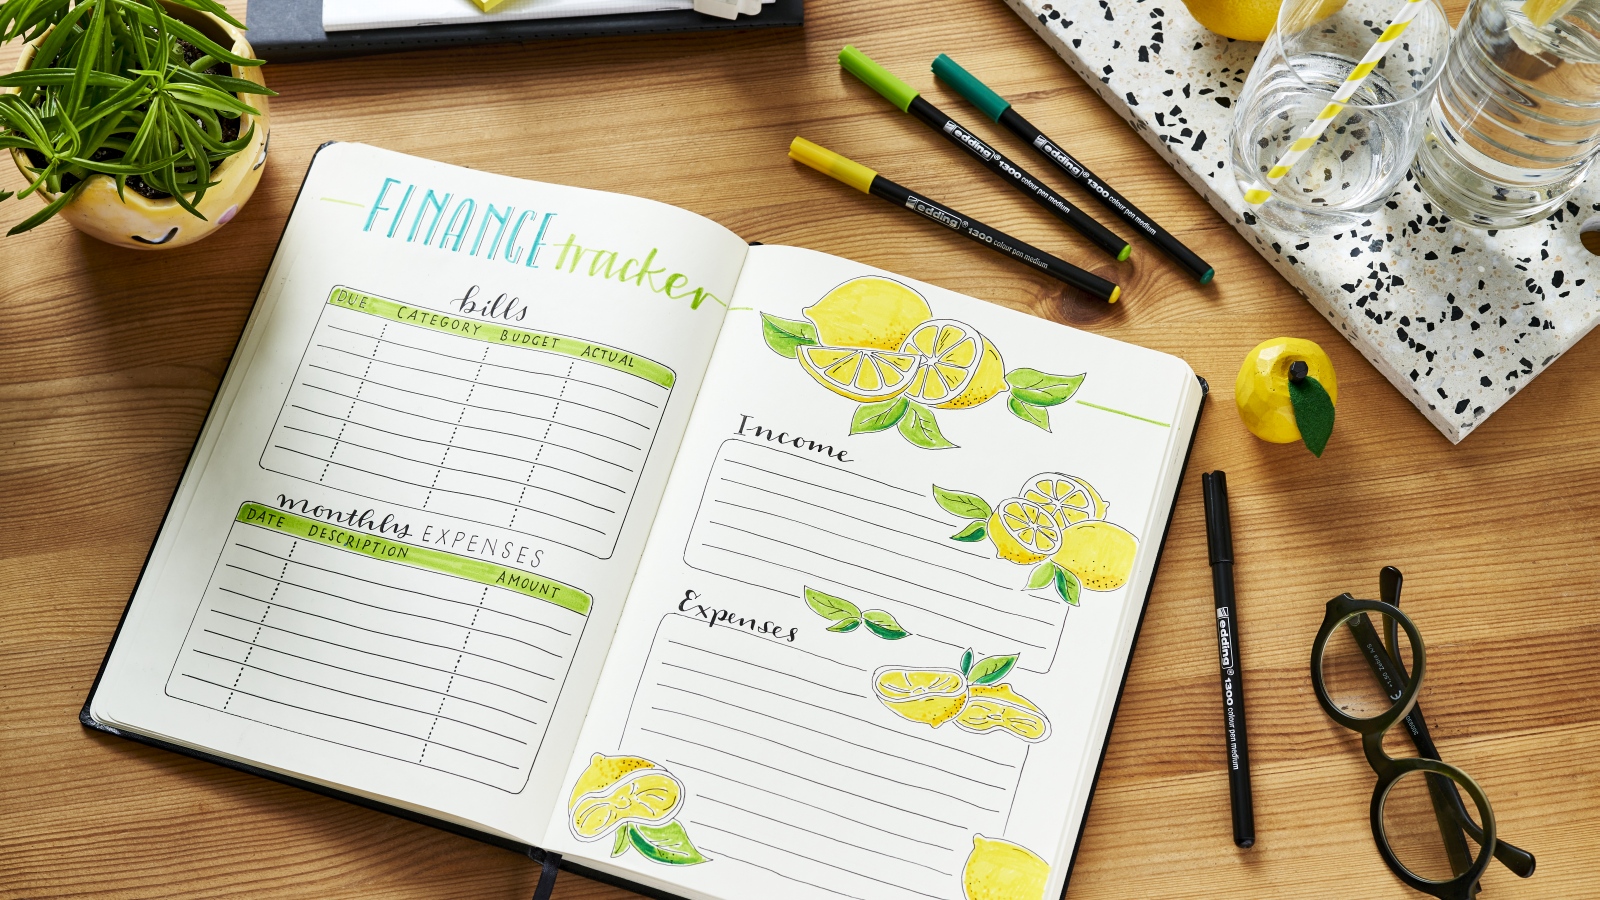 FINANCE tracker
bills
DUE CATEGORY BUDGET ACTUAL
monthly EXPENSES
DATE DESCRIPTION AMOUNT
Income
Expenses
edding® 1300 colour pen medium
edding® 1300 colour pen medium
edding® 1300 colour pen medium
edding® 1300 colour pen medium
+1.50 Zebra A/S